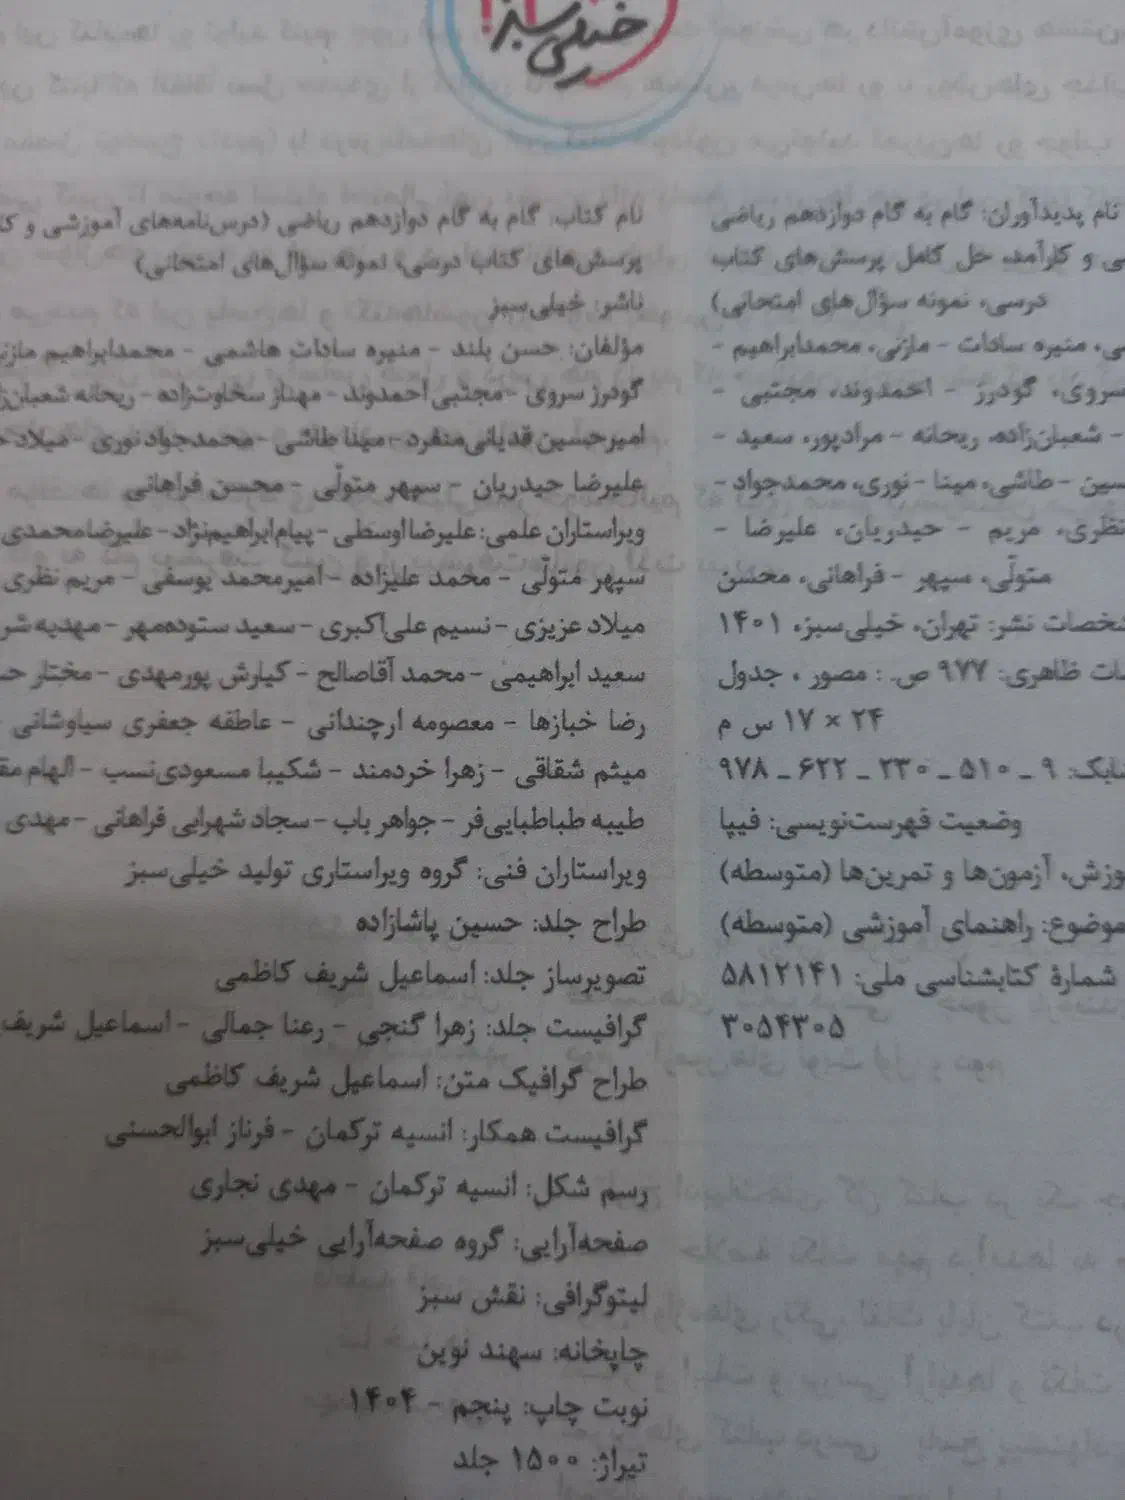 خیلی سبز
نام پدیدآوران: گام به گام دوازدهم ریاضی
و کارآمد، حل کامل پرسش‌های کتاب
درسی، نمونه سؤال‌های امتحانی)
منیره سادات - مازنی، محمدابراهیم -
سروی، گودرز - احمدوند، مجتبی -
- شعبان‌زاده، ریحانه - مرادپور، سعید -
- طاشی، مینا - نوری، محمدجواد -
نظری، مریم - حیدریان، علیرضا -
متولّی، سپهر - فراهانی، محسن
نشر: تهران، خیلی‌سبز، ۱۴۰۱
ظاهری: ۹۷۷ ص. : مصور ، جدول
۲۴ × ۱۷ س م
۹۷۸ ـ ۶۲۲ ـ ۲۳۰ ـ ۵۱۰ ـ ۹
وضعیت فهرست‌نویسی: فیپا
آزمون‌ها و تمرین‌ها (متوسطه)
موضوع: راهنمای آموزشی (متوسطه)
شمارهٔ کتابشناسی ملی: ۵۸۱۲۱۴۱
۳۰۵۴۳۰۵
نام کتاب: گام به گام دوازدهم ریاضی (درس‌نامه‌های آموزشی و
پرسش‌های کتاب درسی، نمونه سؤال‌های امتحانی)
ناشر: خیلی‌سبز
مؤلفان: حسن بلند - منیره سادات هاشمی - محمدابراهیم
گودرز سروی - مجتبی احمدوند - مهناز سخاوت‌زاده - ریحانه
امیرحسین قدیانی‌منفرد - مینا طاشی - محمدجواد نوری - میلاد
علیرضا حیدریان - سپهر متولّی - محسن فراهانی
ویراستاران علمی: علیرضا اوسطی - پیام ابراهیم‌نژاد - علیرضا محمدی
سپهر متولّی - محمد علیزاده - امیرمحمد یوسفی - مریم نظری
میلاد عزیزی - نسیم علی‌اکبری - سعید ستوده‌مهر - مهدیه
سعید ابراهیمی - محمد آقاصالح - کیارش پورمهدی - مختار
رضا خبازها - معصومه ارچندانی - عاطفه جعفری سیاوشانی
میثم شقاقی - زهرا خردمند - شکیبا مسعودی‌نسب - الهام
طیبه طباطبایی‌فر - جواهر باب - سجاد شهرابی فراهانی - مهدی
ویراستاران فنی: گروه ویراستاری تولید خیلی‌سبز
طراح جلد: حسین پاشازاده
تصویرساز جلد: اسماعیل شریف کاظمی
گرافیست جلد: زهرا گنجی - رعنا جمالی - اسماعیل شریف
طراح گرافیک متن: اسماعیل شریف کاظمی
گرافیست همکار: انسیه ترکمان - فرناز ابوالحسنی
رسم شکل: انسیه ترکمان - مهدی نجاری
صفحه‌آرایی: گروه صفحه‌آرایی خیلی‌سبز
لیتوگرافی: نقش سبز
چاپخانه: سهند نوین
نوبت چاپ: پنجم - ۱۴۰۴
تیراژ: ۱۵۰۰ جلد